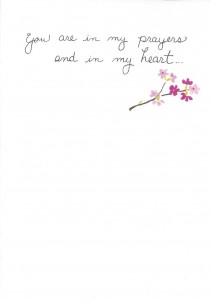 You are in my prayers
and in my heart...